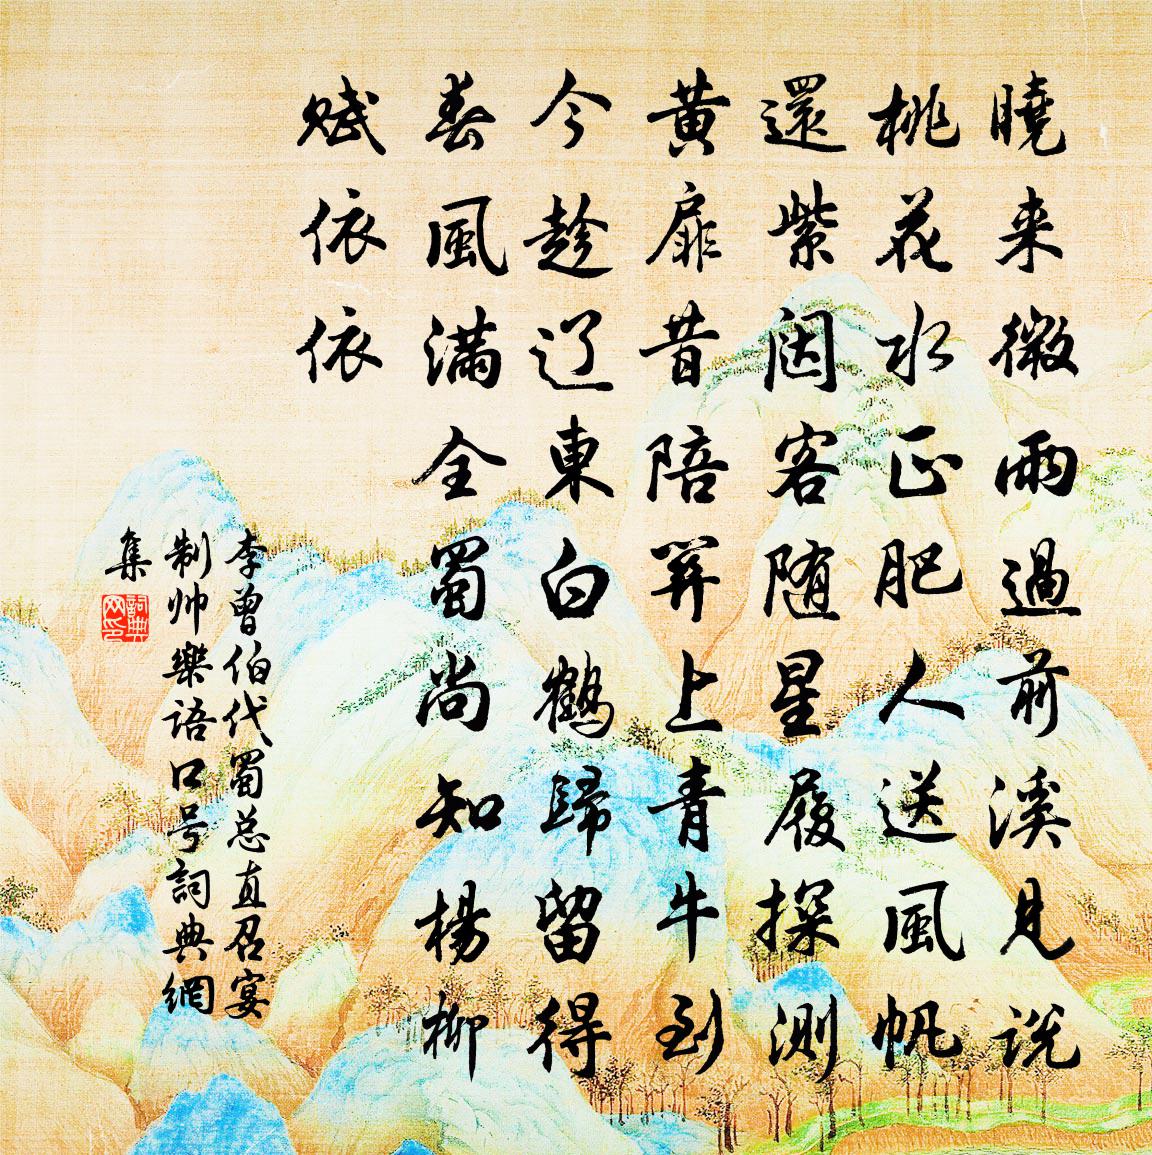 曉来微雨過前溪見说
桃花水正肥人送風帆
還紫闼客随星履探测
黄扉昔陪关上青牛到
今趁辽東白鶴歸留得
春風满全蜀尚知楊柳
赋依依
李曾伯代蜀总直召宴
制帅樂語口号詞典網
集
詞典
网印